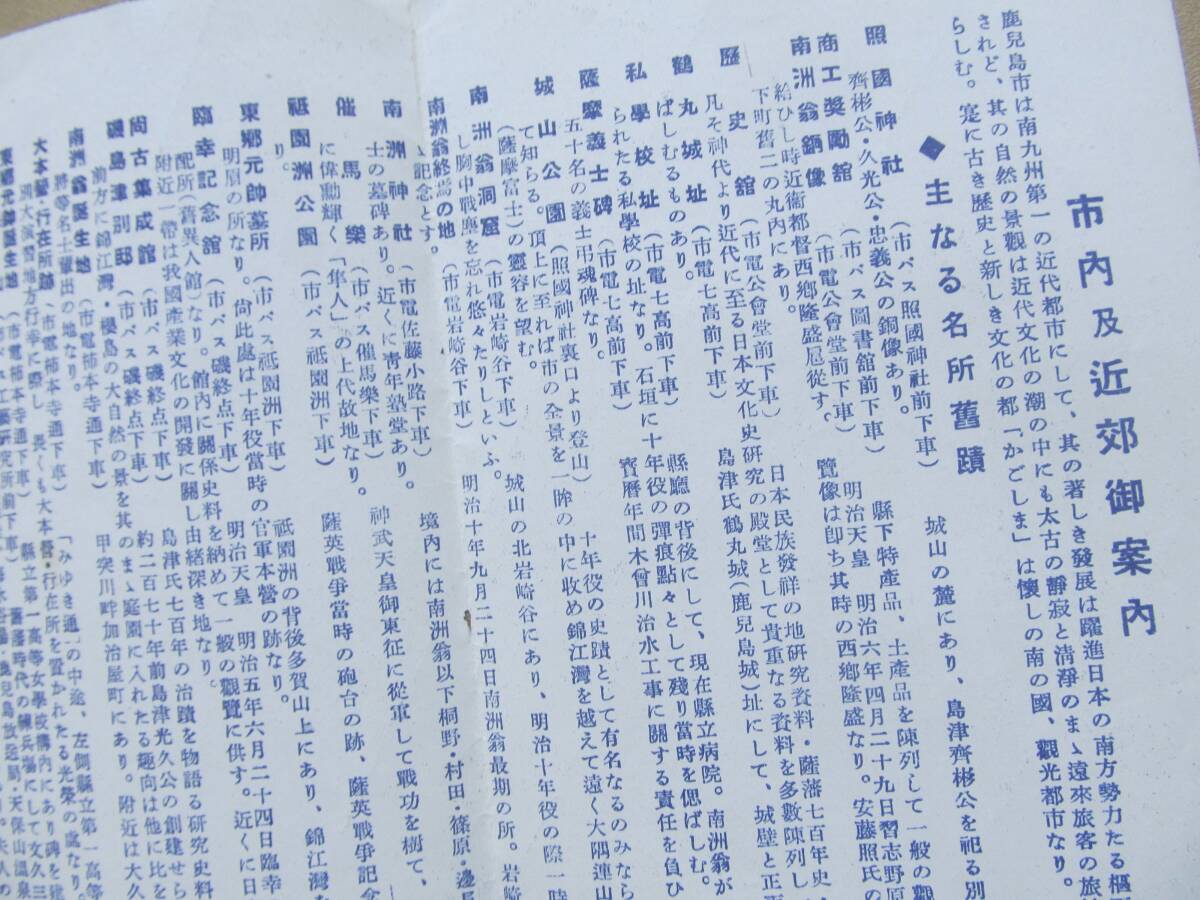 市內及近郊御案內
鹿兒島市は南九州第一の近代都市にして、其の著しき發展は躍進日本の南方勢力たる樞
されど、其の自然の景觀は近代文化の潮の中にも太古の靜寂と淸淨のまゝ遠來旅客の旅
らしむ。寔に古き歷史と新しき文化の都「かごしま」は懷しの南の國、觀光都市なり。
◆主なる名所舊蹟
照國神社（市バス照國神社前下車）城山の麓にあり、島津齊彬公を祀る別
齊彬公・久光公・忠義公の銅像あり。
商工獎勵館（市バス圖書館前下車）縣下特產品、土產品を陳列して一般の觀
南洲翁銅像（市電公會堂前下車）明治天皇　明治六年四月二十九日習志野原
給ひし時近衞都督西鄕隆盛扈從す。覽像は卽ち其時の西鄕隆盛なり。安藤照氏の
下町舊二の丸內にあり。
歷史館（市電公會堂前下車）日本民族發祥の地硏究資料・薩藩七百年史
凡そ神代より近代に至る日本文化史硏究の殿堂として貴重なる資料を多數陳列し
鶴丸城址（市電七高前下車）島津氏鶴丸城（鹿兒島城）址にして、城壁と正
ばしむるものあり。
私學校址（市電七高前下車）縣廳の背後にして、現在縣立病院。南洲翁が
られたる私學校の址なり。石垣に十年役の彈痕點々として殘り當時を偲ばしむ。
薩摩義士碑（市電七高前下車）寶曆年間木曾川治水工事に關する責任を負ひ
五十名の義士弔魂碑なり。
城山公園（照國神社裏口より登山）十年役の史蹟として有名なるのみなら
て知らる。頂上に至れば市の全景を一眸の中に收め錦江灣を越えて遠く大隅連山
（薩摩富士）の靈容を望む。
南洲翁洞窟（市電岩崎谷下車）城山の北岩崎谷にあり、明治十年役の際一時
し胸中戰塵を忘れ悠々たりしといふ。
南洲翁終焉の地（市電岩崎谷下車）明治十年九月二十四日南洲翁最期の所。岩崎
記念とす。
南洲神社（市電佐藤小路下車）境內には南洲翁以下桐野・村田・篠原・邊見
士の墓碑あり。近くに靑年塾堂あり。
催馬樂（市バス催馬樂下車）神武天皇御東征に從軍して戰功を樹て、
に偉勳輝く「隼人」の上代故地なり。
祇園洲公園（市バス祇園洲下車）薩英戰爭當時の砲台の跡、薩英戰爭記念
り。
東鄕元帥墓所（市バス祇園洲下車）祇園洲の背後多賀山上にあり、錦江灣
明眉の所なり。尙此處は十年役當時の官軍本營の跡なり。
臨幸記念館（市バス磯終点下車）明治天皇　明治五年六月二十四日臨幸
配所（舊異人館）なり。館內に關係史料を納めて一般の觀覽に供す。近くに日
附近一帶は我國產業文化の開發に關し由緖深き地なり。
尙古集成館（市バス磯終点下車）島津氏七百年の治蹟を物語る硏究史料
磯島津別邸（市バス磯終点下車）約二百七十年前島津光久公の創建せら
前方に錦江灣・櫻島の大自然の景を其のまゝ庭園に入れたる趣向は他に比を
南洲翁誕生地（市電柿本寺通下車）甲突川畔加治屋町にあり。附近は大久
將等名士輩出の地なり。
大本營・行在所跡（市電柿本寺通下車）「みゆき通」の中途、左側縣立第一高等
別大演習地方行幸に際し　畏くも大本營・行在所を置かれたる光榮の處なり。
東鄕元帥誕生地（市電柿本寺通下車）縣立第一高等女學校構內にあり碑を建